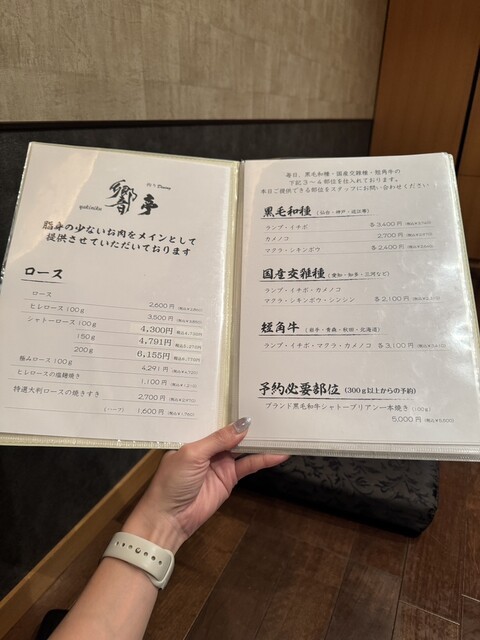 響亭
yakiniku
脂身の少ないお肉をメインとして
提供させていただいております
ロース
ロース 2,600円
ヒレロース100g 3,500円
シャトーロース100g 4,300円
150g 4,791円
200g 6,155円
極みロース100g 4,291円
ヒレロースの塩麹焼き 1,100円
特選大判ロースの焼きすき 2,700円
(ハーフ) 1,600円
毎日、黒毛和種・国産交雑種・短角牛の
下記3〜4部位を仕入れております。
本日ご提供できる部位をスタッフにお問い合わせください
黒毛和種 (仙台・神戸・近江等)
ランプ・イチボ 各3,400円
カメノコ 2,700円
マクラ・シキンボウ 各2,400円
国産交雑種 (愛知・知多・三河など)
ランプ・イチボ・カメノコ
マクラ・シキンボウ・シンシン 各2,100円
短角牛 (岩手・青森・秋田・北海道)
ランプ・イチボ・マクラ・カメノコ 各3,100円
予約必要部位 (300g以上からの予約)
ブランド黒毛和牛シャトーブリアン一本焼き (100g)
5,000円 (税込¥5,500)